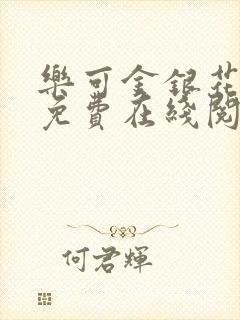 樂可金銀花
免費在綫閱
何君輝